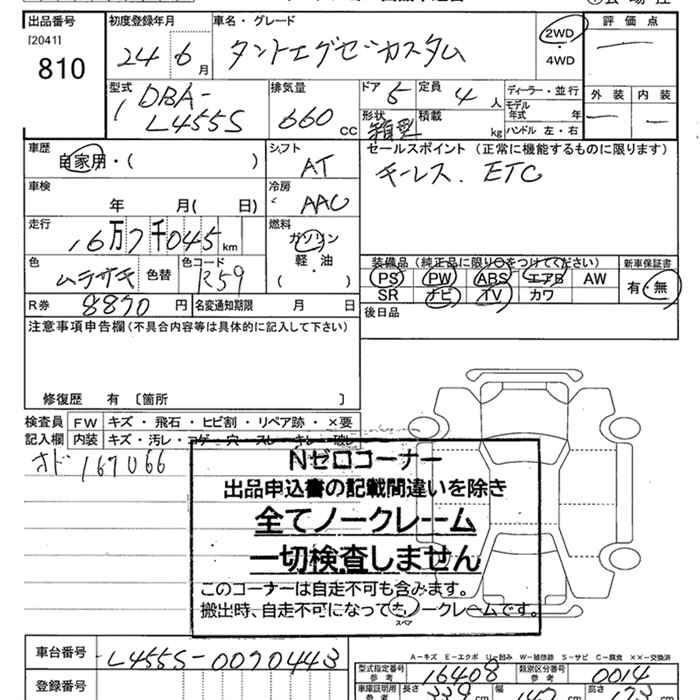 出品番号
[2041]
810
初度登録年月
24 6 月
車名・グレード
タントエグゼカスタム
2WD
・
4WD
評価点
外装 内装
型式
DBA-
L455S
排気量
660 CC
ドア 5
定員 4 人
形状 箱型
積載 kg
ディーラー・並行
モデル
年式 年
ハンドル 左・右
車歴
自家用・( )
シフト
AT
車検
年 月( 日)
冷房
AAC
セールスポイント (正常に機能するものに限ります)
キーレス. ETC
走行
16万7千045 km
燃料
ガソリン
軽・油
( )
色
ムラサキ
色替
色コード
R59
装備品(純正品に限り○をつけてください)
PS PW ABS エアB AW
SR ナビ TV カワ
新車保証書
有・無
R券 8870 円
名変通知期限 月 日
後日品
注意事項申告欄(不具合内容等は具体的に記入して下さい)
修復歴 有 〔箇所 〕
検査員
記入欄
FW キズ・飛石・ヒビ割・リペア跡・×要
内装 キズ・汚レ・コゲ・穴・スレ・キレ・破レ
オド 167066
Nゼロコーナー
出品申込書の記載間違いを除き
全てノークレーム
一切検査しません
このコーナーは自走不可も含みます。
搬出時、自走不可になってもノークレームです。
スペア
A－キズ E－エクボ U－凹み W－補修跡 S－サビ C－腐食 ××－交換済
車台番号 L455S-0070443
型式指定番号
参考 16408
類別区分番号
参考 0014
登録番号
車庫証明用
参考
長さ 339
幅 147
高さ